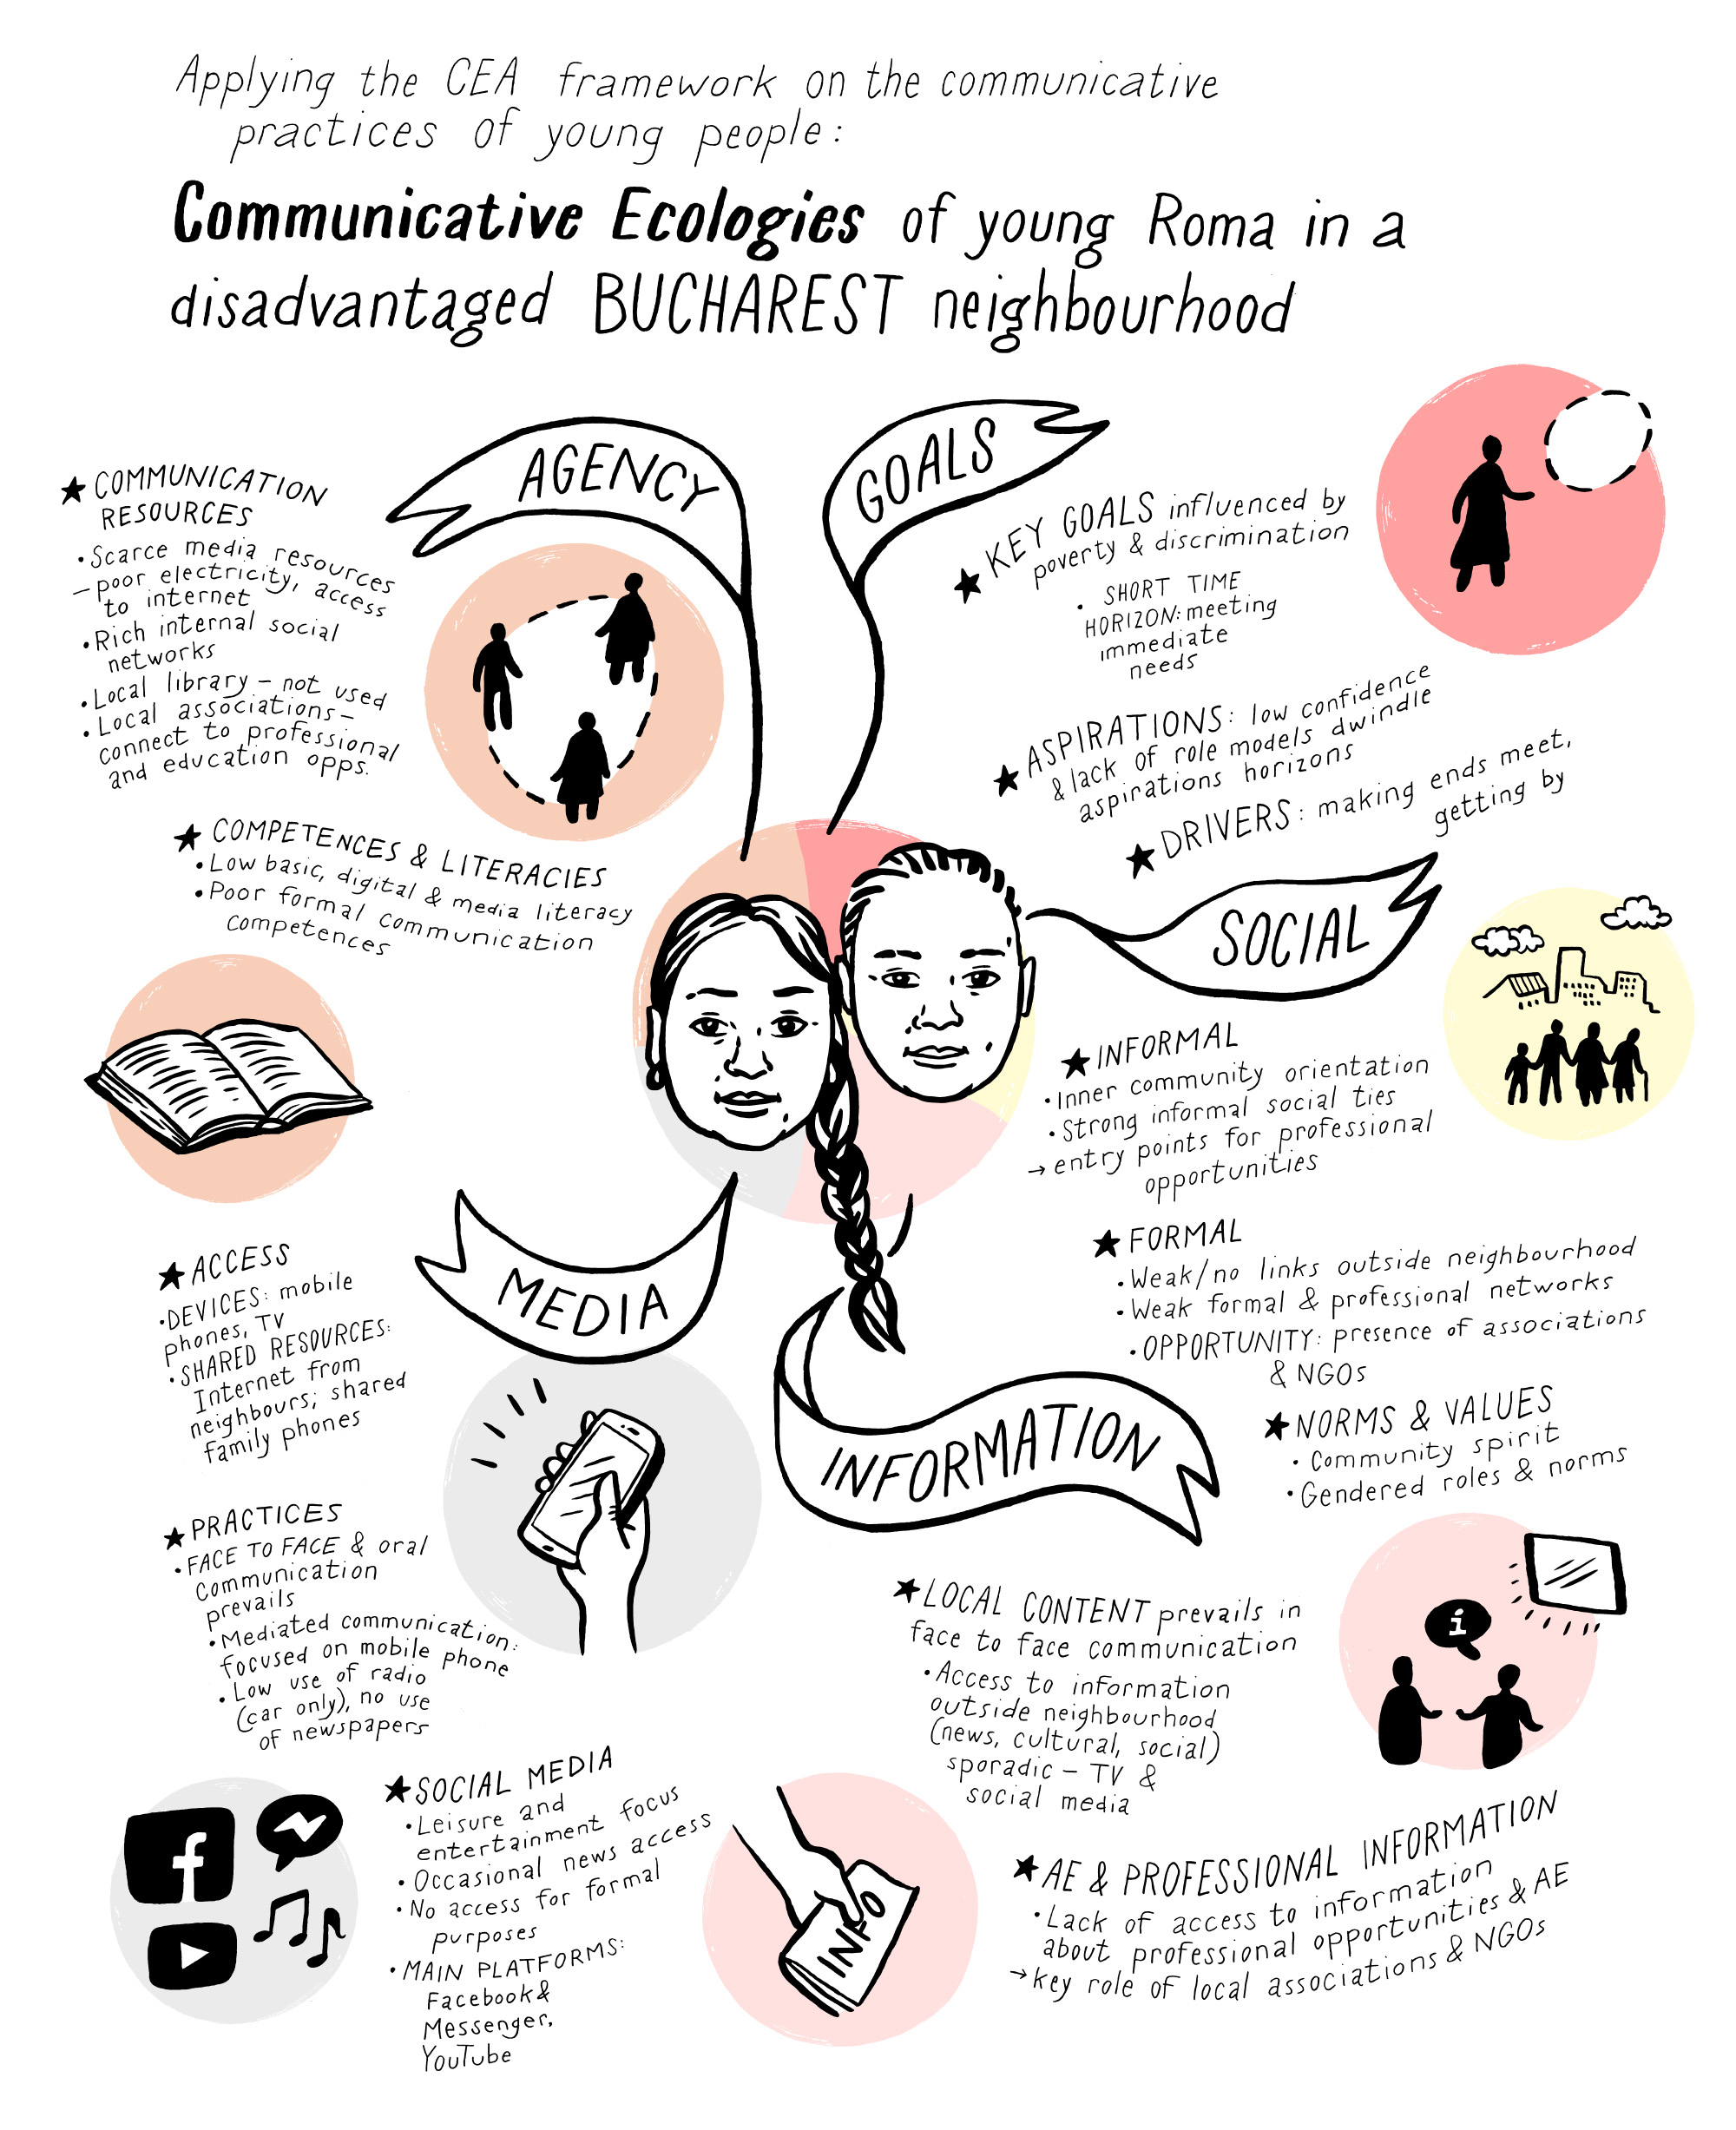 Applying the CEA framework on the communicative
practices of young people:
Communicative Ecologies of young Roma in a
disadvantaged BUCHAREST neighbourhood
AGENCY
★ COMMUNICATION
RESOURCES
• Scarce media resources
– poor electricity, access
to internet
• Rich internal social
networks
• Local library – not used
• Local associations –
connect to professional
and education opps.
★ COMPETENCES & LITERACIES
• Low basic, digital & media literacy
• Poor formal communication
competences
GOALS
★ KEY GOALS influenced by
poverty & discrimination
• SHORT TIME
HORIZON: meeting
immediate
needs
★ ASPIRATIONS: low confidence
& lack of role models dwindle
aspirations horizons
★ DRIVERS: making ends meet,
getting by
SOCIAL
★ INFORMAL
• Inner community orientation
• Strong informal social ties
→ entry points for professional
opportunities
★ FORMAL
• Weak/no links outside neighbourhood
• Weak formal & professional networks
• OPPORTUNITY: presence of associations
& NGOs
★ NORMS & VALUES
• Community spirit
• Gendered roles & norms
MEDIA
★ ACCESS
• DEVICES: mobile
phones, TV
• SHARED RESOURCES:
Internet from
neighbours; shared
family phones
★ PRACTICES
• FACE TO FACE & oral
communication
prevails
• Mediated communication:
focused on mobile phone
• Low use of radio
(car only), no use
of newspapers
★ SOCIAL MEDIA
• Leisure and
entertainment focus
• Occasional news access
• No access for formal
purposes
• MAIN PLATFORMS:
Facebook &
Messenger,
YouTube
INFORMATION
★ LOCAL CONTENT prevails in
face to face communication
• Access to information
outside neighbourhood
(news, cultural, social)
sporadic – TV &
social media
i
INFO
★ AE & PROFESSIONAL INFORMATION
• Lack of access to information
about professional opportunities & AE
→ key role of local associations & NGOs